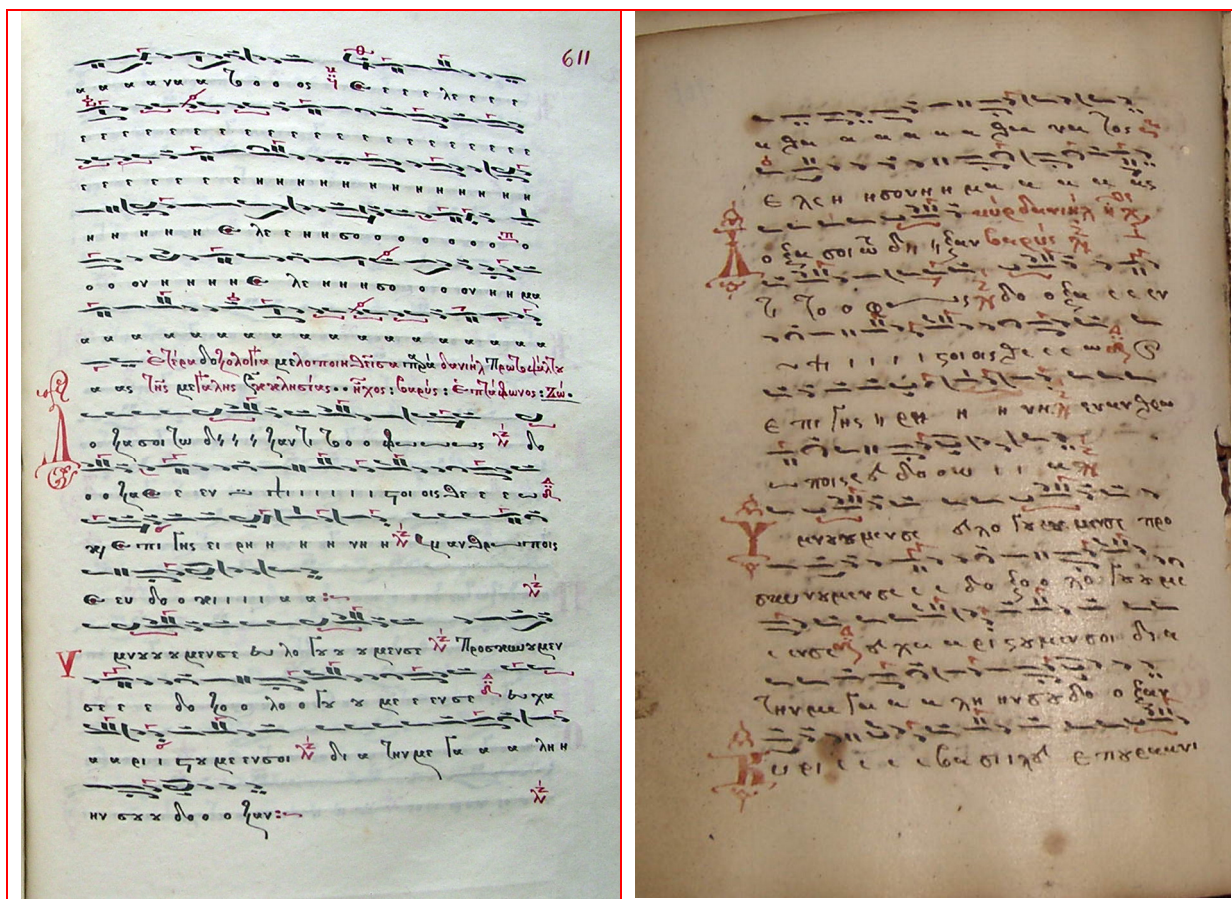 611
α α α α να α το ο ο ος ε ε ε ε λε ε ε ε
ε ε ε ε ε ε ε ε ε ε ε ε ε ε ε ε ε ε
ε ε ε ε ε η η η η η η η η η η η η
η η η η η ε λε ε η η σο ο ο ο ο ο ο ο
ο ο ον η η η ε λε η η σο ο ο ον η η μα
α α α α α α α α α α α α α α α α
Ετέρα δοξολογία μελοποιηθείσα παρά δανιήλ Πρωτοψάλτου
α ας της μεγάλης εκκλησίας ήχος : βαρύς : επτάφωνος : Ζω.
Δο ξα σοι τω δει ει ει ξαν τι το ο ο φω ω ω ω ως δο
ο ο ξα ε ε εν υι ψι ι ι ι ι ι στοι οις θε ε ε ω
και ε πι γης ει ρη η η η η νη η εν αν θρω ω ποις
ε ευ δο ο κι ι ι ι α α
Υ μνου ου ου μεν σε ευ λο γου ου ου μεν σε Προσκυνουμεν
σε ε ε δο ξο ο λο ο γου ου με ε εν σε ευ χα
α α ρι ι στου με εν σοι δι α την με γα α α α λη η
ην σου ου δο ο ο ξαν
α θα α α α α α θα να τος
ε λε η η σον η η μα α α α α ας
κυρ δανιήλ
Δο ξα σοι τω δει ει ξαν βαρύς
τι το ο φω ως δο ο ξα ε ε εν
υ ψι ι ι ι στοι οις θε ε ε ω
ε πι γης ει ρη η η νη εν αν θρω
ω ποις ευ δο ο κι ι ι α
Υ μνου ου μεν σε ευ λο γου ου μεν σε προ
σκυ νου μεν σε ε ε δο ξο ο λο γου ου με
ε εν σε ευ χα α α ρι στου μεν σοι δι α
την με γα α α λη ην σου δο ο ξαν
Κυ ρι ε ε ε ε βα σι λευ ε που ρα νι